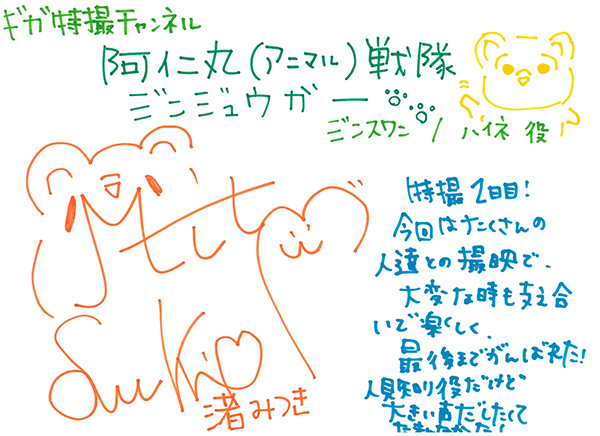 ギガ特撮チャンネル
阿仁丸(アニマル)戦隊
ジンジュウガー
ジンスワン / ハイネ 役
特撮2日目!
今回はたくさんの
人達との撮映で、
大変な時も支え合
いで楽しく、
最後までがんばれた!
人見知り役だけど
大きい声だしたくて
たまらなかった!
渚みつき